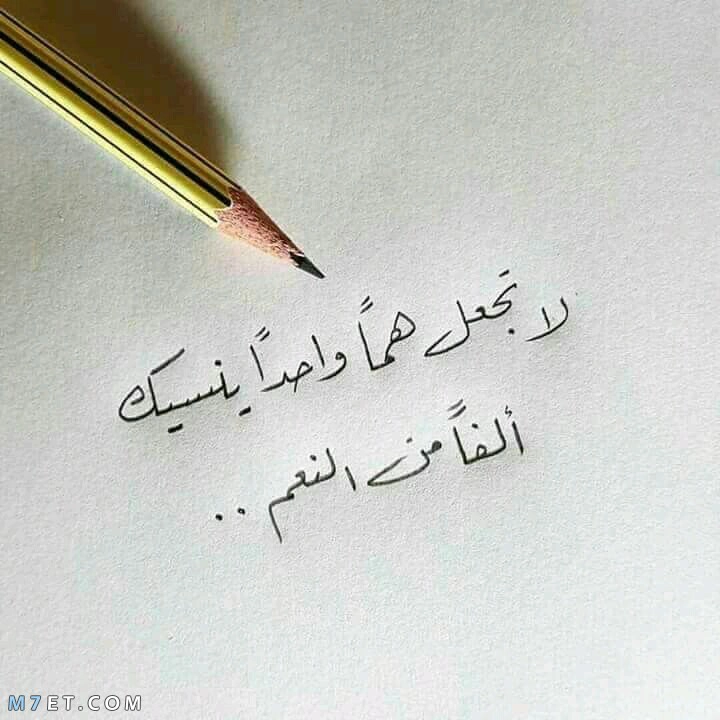 لا تجعل هماً واحداً ينسيك
ألفاً من النعم ..
M7ET.COM